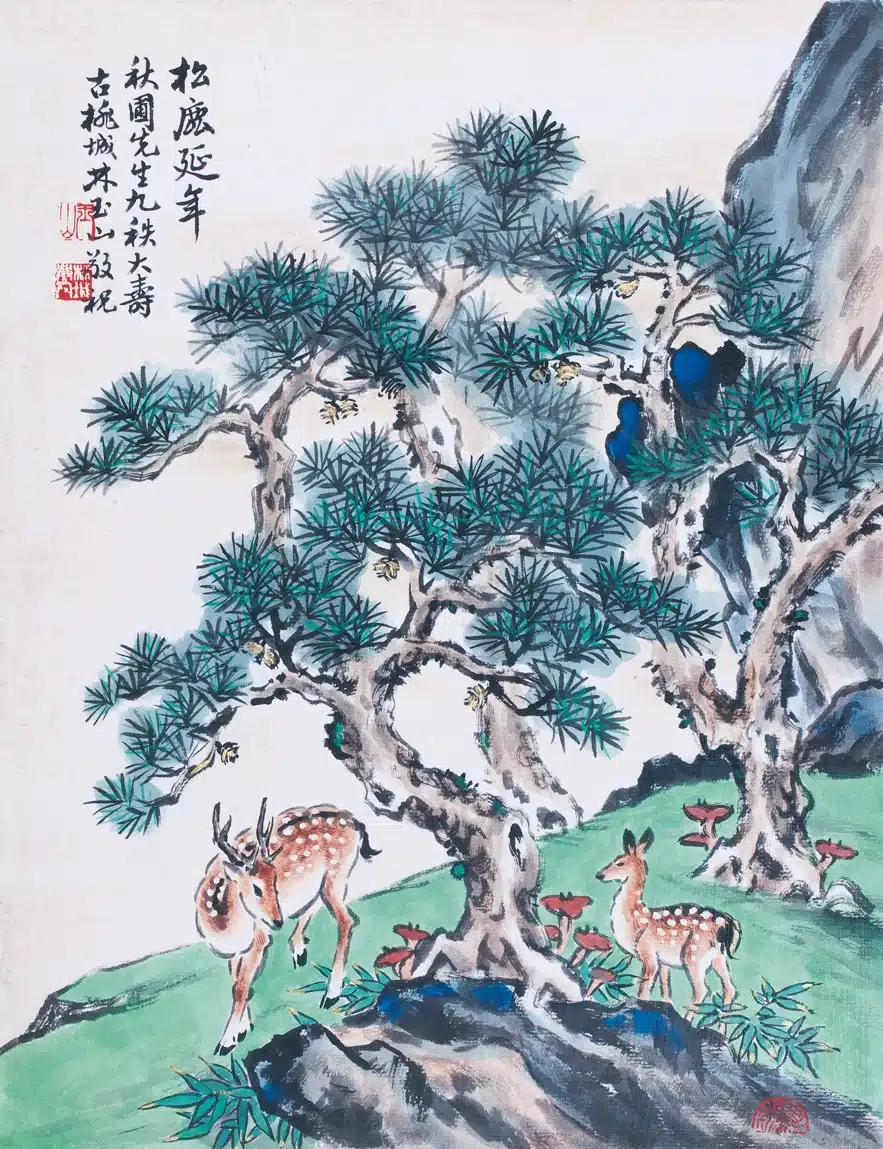 松鹿延年
秋圃先生九秩大壽
古桃城林玉山敬祝
玉山
桃城